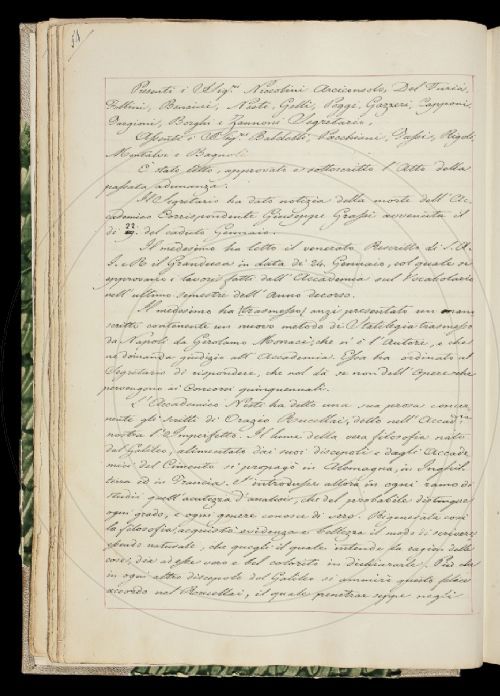 54
Presenti i SS.ri Sig.ri Niccolini Arciconsolo, Del Furia,
Follini, Bencini, Nesti, Gelli, Poggi, Gazzeri, Capponi,
Targioni, Borghi e Zannoni Segretario;
Assenti i SS.ri Sig.ri Baldelli, Pacchiani, Tassi, Rigoli,
Montalvi e Bagnoli.
È stato letto, approvato e sottoscritto l'Atto della
passata adunanza.
Il Segretario ha dato notizia della morte dell'Ac-
cademico Corrispondente Giuseppe Grassi avvenuta il
dì 22 del caduto Gennaio.
Il medesimo ha letto il venerato Rescritto di S. A.
I. e R. il Granduca in data di 24 Gennaio, col quale si
approvano i lavori fatti dall'Accademia sul Vocabolario
nell'ultimo semestre dell'Anno decorso.
Il medesimo ha (trasmesso) anzi presentato un man
scritto contenente un nuovo metodo di trasmesso
da Napoli da Gerolamo Monaci, che n'è l'Autore, e che
ne domanda giudizio all'Accademia. Essa ha ordinato al
Segretario di rispondere, che nol dà se non dell'Opere che
pervengono ai Concorsi quinquennali.
L'Accademico Nesti ha detto una sua prosa concer-
nente gli scritti di Orazio Rucellai, detto nell'Accademia
nostra l'Imperfetto. Il lume della vera filosofia nato
dal Galileo, alimentato dai suoi discepoli e dagli Accade-
mici del Cimento si propagò in Alemagna, in Inghil-
terra ed in Francia, et introdusse allora in ogni ramo di
studii quell'acutezza d'analisi, che del probabile distingue
ogni grado, e ogni genere conosce di vero. Rigenerata così
la filosofia, acquistò evidenza e bellezza il modo di scrivere
essendo naturale, che quegli il quale intende la ragion delle
cose, dia ad esse vero e bel colorito in dichiararle. Più che
in ogni altro discepolo del Galileo si ammira questo felice
accordo nel Rucellai, il quale penetrar seppe negli